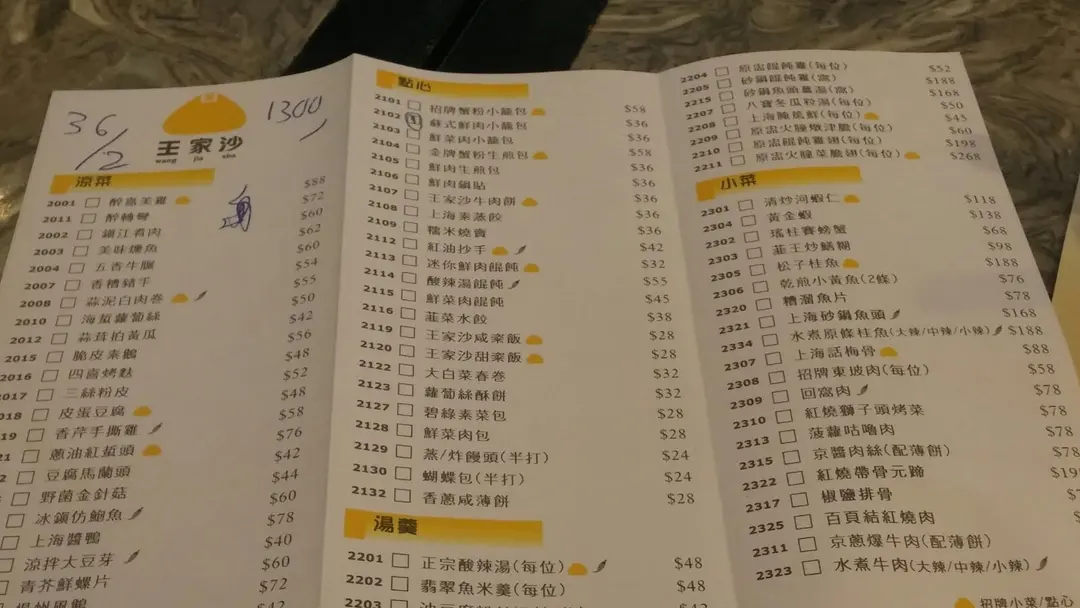 36/2
1300
王家沙
wang jia sha
涼菜
2001 醉蟲美雞 $88
2011 醉轉彎 $72
2002 鎮江肴肉 $60
2003 美味燻魚 $62
2004 五香牛腱 $60
2007 香糟豬手 $54
2008 蒜泥白肉卷 $55
2010 海蜇蘿蔔絲 $50
2012 蒜茸拍黃瓜 $42
2015 脆皮素鵝 $56
2016 四喜烤麩 $48
2017 三絲粉皮 $52
018 皮蛋豆腐 $48
19 香芹手撕雞 $58
21 蔥油紅蜇頭 $76
2 豆腐馬蘭頭 $42
野菌金針菇 $44
冰鎮仿鮑魚 $60
上海醬鴨 $78
涼拌大豆芽 $40
青芥鮮螺片 $60
$72
$42
點心
2101 招牌蟹粉小籠包 $58
2102 蘇式鮮肉小籠包 $36
2103 鮮菜肉小籠包 $36
2104 金牌蟹粉生煎包 $58
2105 鮮肉生煎包 $36
2106 鮮肉鍋貼 $36
2107 王家沙牛肉餅 $36
2108 上海素蒸餃 $36
2109 糯米燒賣 $36
2112 紅油抄手 $42
2113 迷你鮮肉餛飩 $32
2114 酸辣湯餛飩 $55
2115 鮮菜肉餛飩 $45
2116 韮菜水餃 $38
2119 王家沙咸粢飯 $28
2120 王家沙甜粢飯 $28
2122 大白菜春卷 $32
2123 蘿蔔絲酥餅 $32
2127 碧綠素菜包 $28
2128 鮮菜肉包 $28
2129 蒸/炸饅頭(半打) $24
2130 蝴蝶包(半打) $24
2132 香蔥咸薄餅 $28
湯羹
2201 正宗酸辣湯(每位) $48
2202 翡翠魚米羹(每位) $48
2203 $42
2204 原盅餛飩雞(每位) $52
2205 砂鍋餛飩雞(窩) $188
2215 砂鍋魚頭蘿湯(窩) $168
2207 八寶冬瓜粒湯(每位) $50
2208 上海腌篤鮮(每位) $45
2209 原盅火朣燉津膽(每位) $60
2210 原盅餛飩雞翅(每位) $198
2211 原盅火朣菜膽翅(每位) $268
小菜
2301 清炒河蝦仁 $118
2304 黃金蝦 $138
2302 瑤柱賽螃蟹 $68
2303 韮王炒鱔糊 $98
2305 松子桂魚 $188
2306 乾煎小黃魚(2條) $76
2320 糟溜魚片 $78
2321 上海砂鍋魚頭 $168
2334 水煮原條桂魚(大辣/中辣/小辣) $188
2307 上海話梅骨 $88
2308 招牌東坡肉(每位) $58
2309 回窩肉 $78
2310 紅燒獅子頭烤菜 $78
2313 菠蘿咕嚕肉 $78
2315 京醬肉絲(配薄餅) $78
2322 紅燒帶骨元蹄
2317 椒鹽排骨
2325 百頁結紅燒肉
2311 京蔥爆牛肉(配薄餅)
2323 水煮牛肉(大辣/中辣/小辣)
招牌小菜/點心